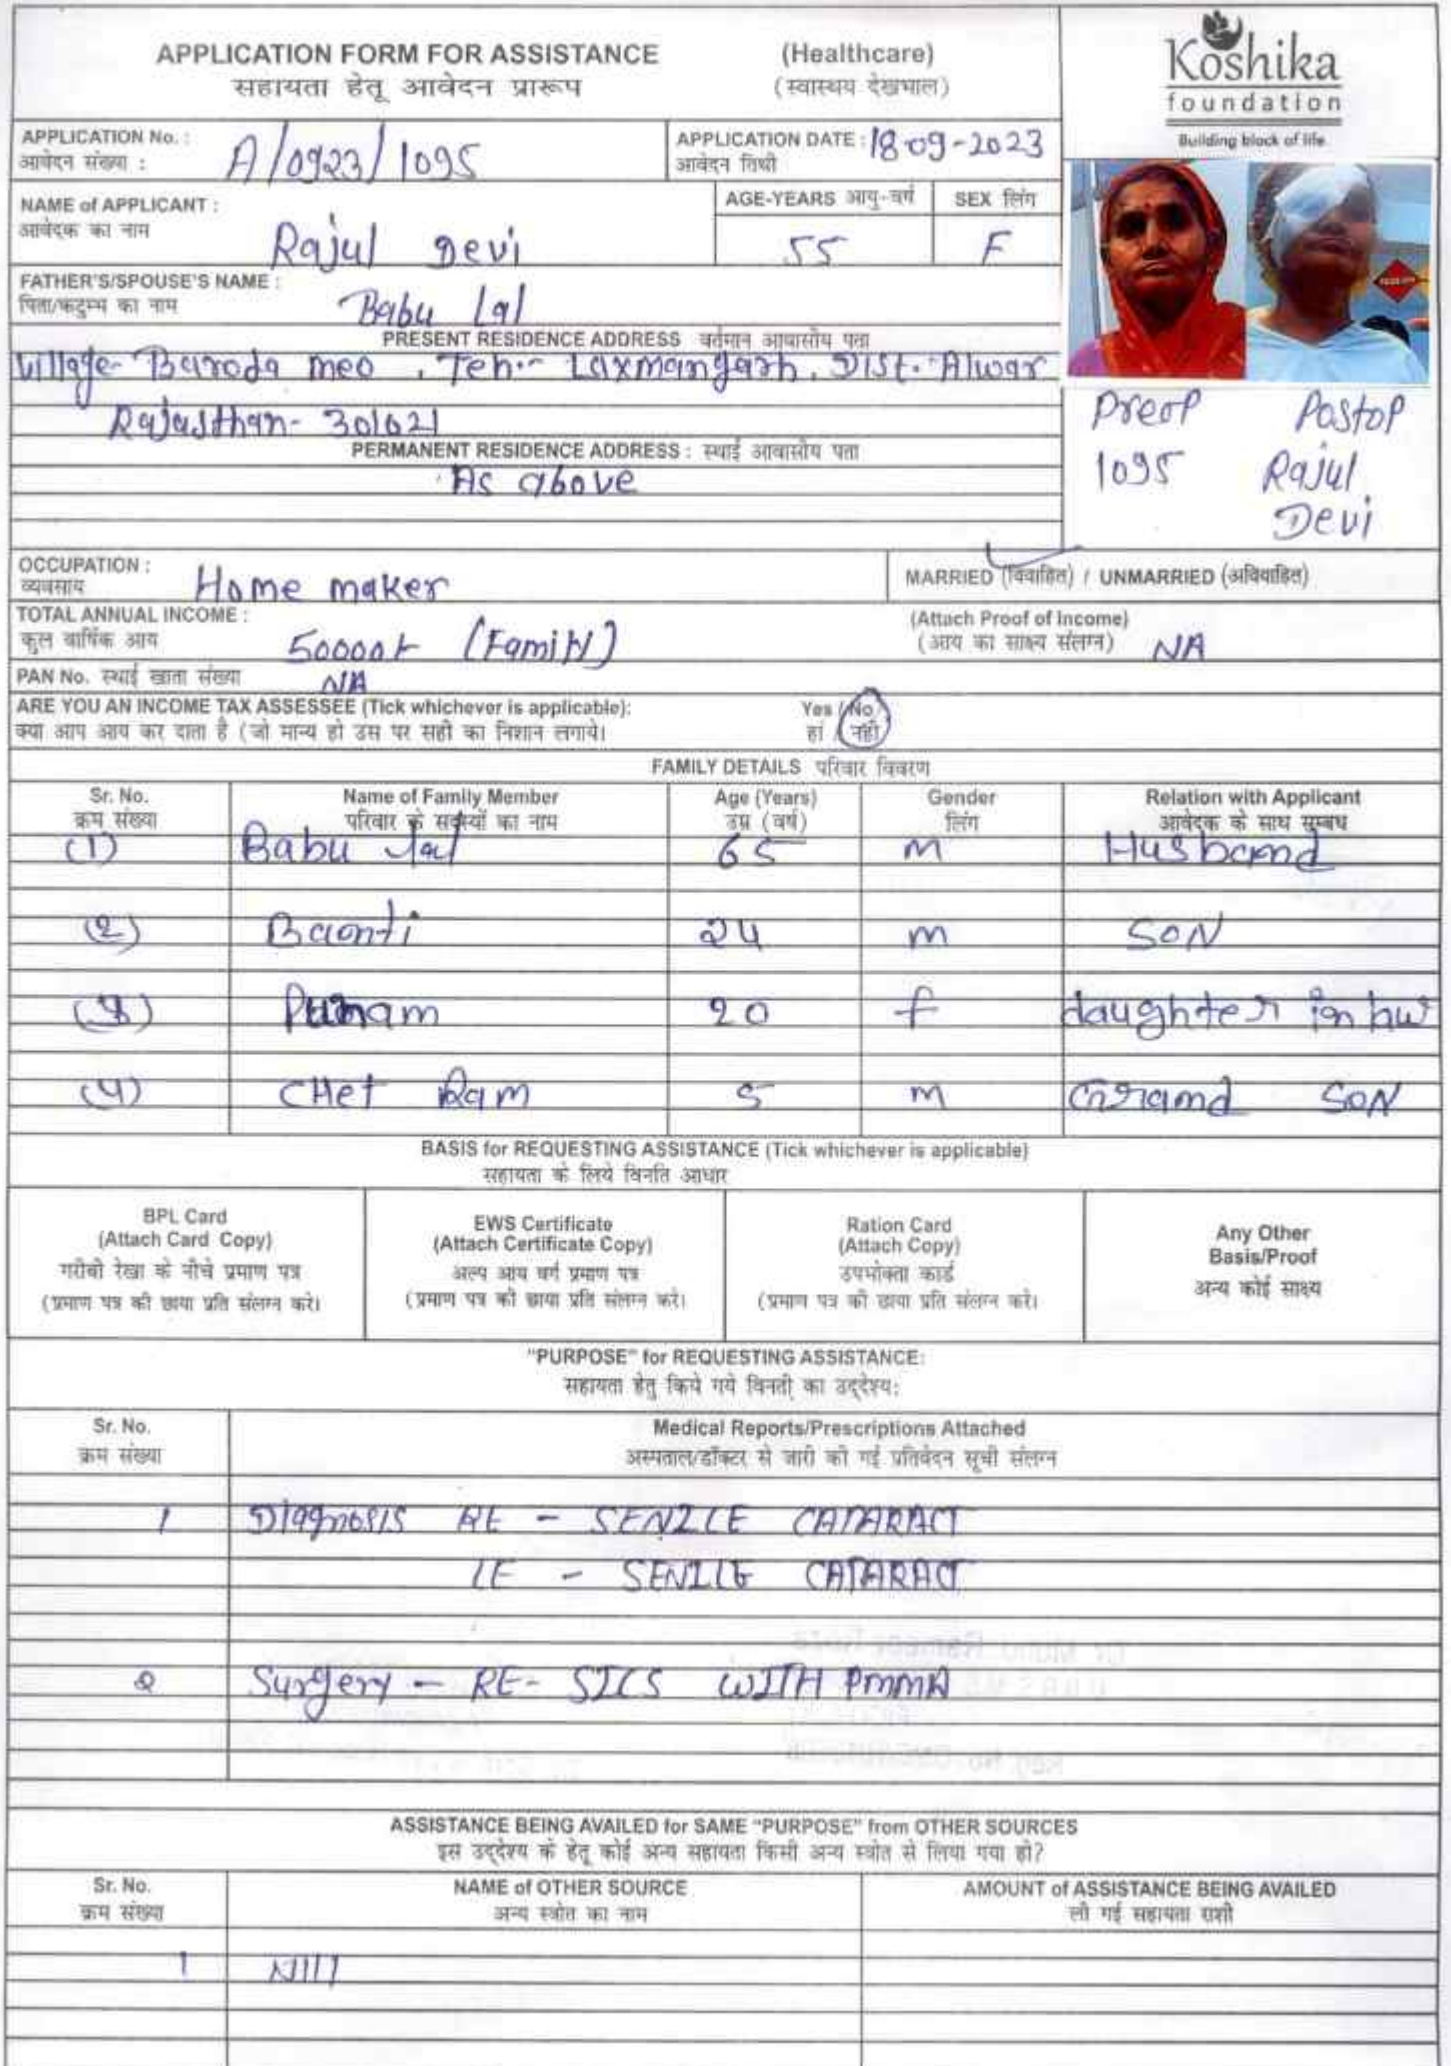 APPLICATION FORM FOR ASSISTANCE (Healthcare)
सहायता हेतू आवेदन प्रारूप (स्वास्थय देखभाल)
Koshika
foundation
Building block of life
APPLICATION No. : A/0923/1095 APPLICATION DATE : 18-09-2023
आवेदन संख्या : आवेदन तिथी
NAME of APPLICANT : Rajul Devi AGE-YEARS आयु-वर्ग 55 SEX लिंग F
आवेदक का नाम
FATHER'S/SPOUSE'S NAME : Babu Lal
पिता/कटुम्भ का नाम
PRESENT RESIDENCE ADDRESS वर्तमान आवासीय पता
Village- Baroda meo , Teh:- Laxmangarh, Dist.- Alwar
Rajasthan- 301021
PERMANENT RESIDENCE ADDRESS : स्थाई आवासीय पता
As above
Preop Postop
1095 Rajul
Devi
OCCUPATION : Home maker MARRIED (विवाहित) / UNMARRIED (अविवाहित)
व्यवसाय
TOTAL ANNUAL INCOME : 50000/- (Family) (Attach Proof of Income) NA
कुल वार्षिक आय (आय का साक्ष्य संलग्न)
PAN No. स्थाई खाता संख्या NA
ARE YOU AN INCOME TAX ASSESSEE (Tick whichever is applicable): Yes / No
क्या आप आय कर दाता है (जो मान्य हो उस पर सही का निशान लगाये। हां / नहीं
FAMILY DETAILS परिवार विवरण
Sr. No. Name of Family Member Age (Years) Gender Relation with Applicant
क्रम संख्या परिवार के सदस्यों का नाम उम्र (वर्ष) लिंग आवेदक के साथ सम्बध
(1) Babu Lal 65 m Husband
(2) Baonti 24 m SON
(3) Punam 20 f daughter in law
(4) CHet Ram 5 m Grand SON
BASIS for REQUESTING ASSISTANCE (Tick whichever is applicable)
सहायता के लिये विनति आधार
BPL Card
(Attach Card Copy)
गरीबी रेखा के नीचे प्रमाण पत्र
(प्रमाण पत्र की छाया प्रति संलग्न करे।
EWS Certificate
(Attach Certificate Copy)
अल्प आय वर्ग प्रमाण पत्र
(प्रमाण पत्र की छाया प्रति संलग्न करे।
Ration Card
(Attach Copy)
उपभोक्ता कार्ड
(प्रमाण पत्र की छाया प्रति संलग्न करे।
Any Other
Basis/Proof
अन्य कोई साक्ष्य
"PURPOSE" for REQUESTING ASSISTANCE:
सहायता हेतु किये गये विनती का उद्देश्य:
Sr. No. Medical Reports/Prescriptions Attached
क्रम संख्या अस्पताल/डॉक्टर से जारी की गई प्रतिवेदन सूची संलग्न
1 Diagnosis RE - SENILE CATARACT
LE - SENILE CATARACT
2 Surgery - RE- SICS WITH PMMA
ASSISTANCE BEING AVAILED for SAME "PURPOSE" from OTHER SOURCES
इस उद्देश्य के हेतू कोई अन्य सहायता किसी अन्य स्त्रोत से लिया गया हो?
Sr. No. NAME of OTHER SOURCE AMOUNT of ASSISTANCE BEING AVAILED
क्रम संख्या अन्य स्त्रोत का नाम ली गई सहायता राशी
1 Nill